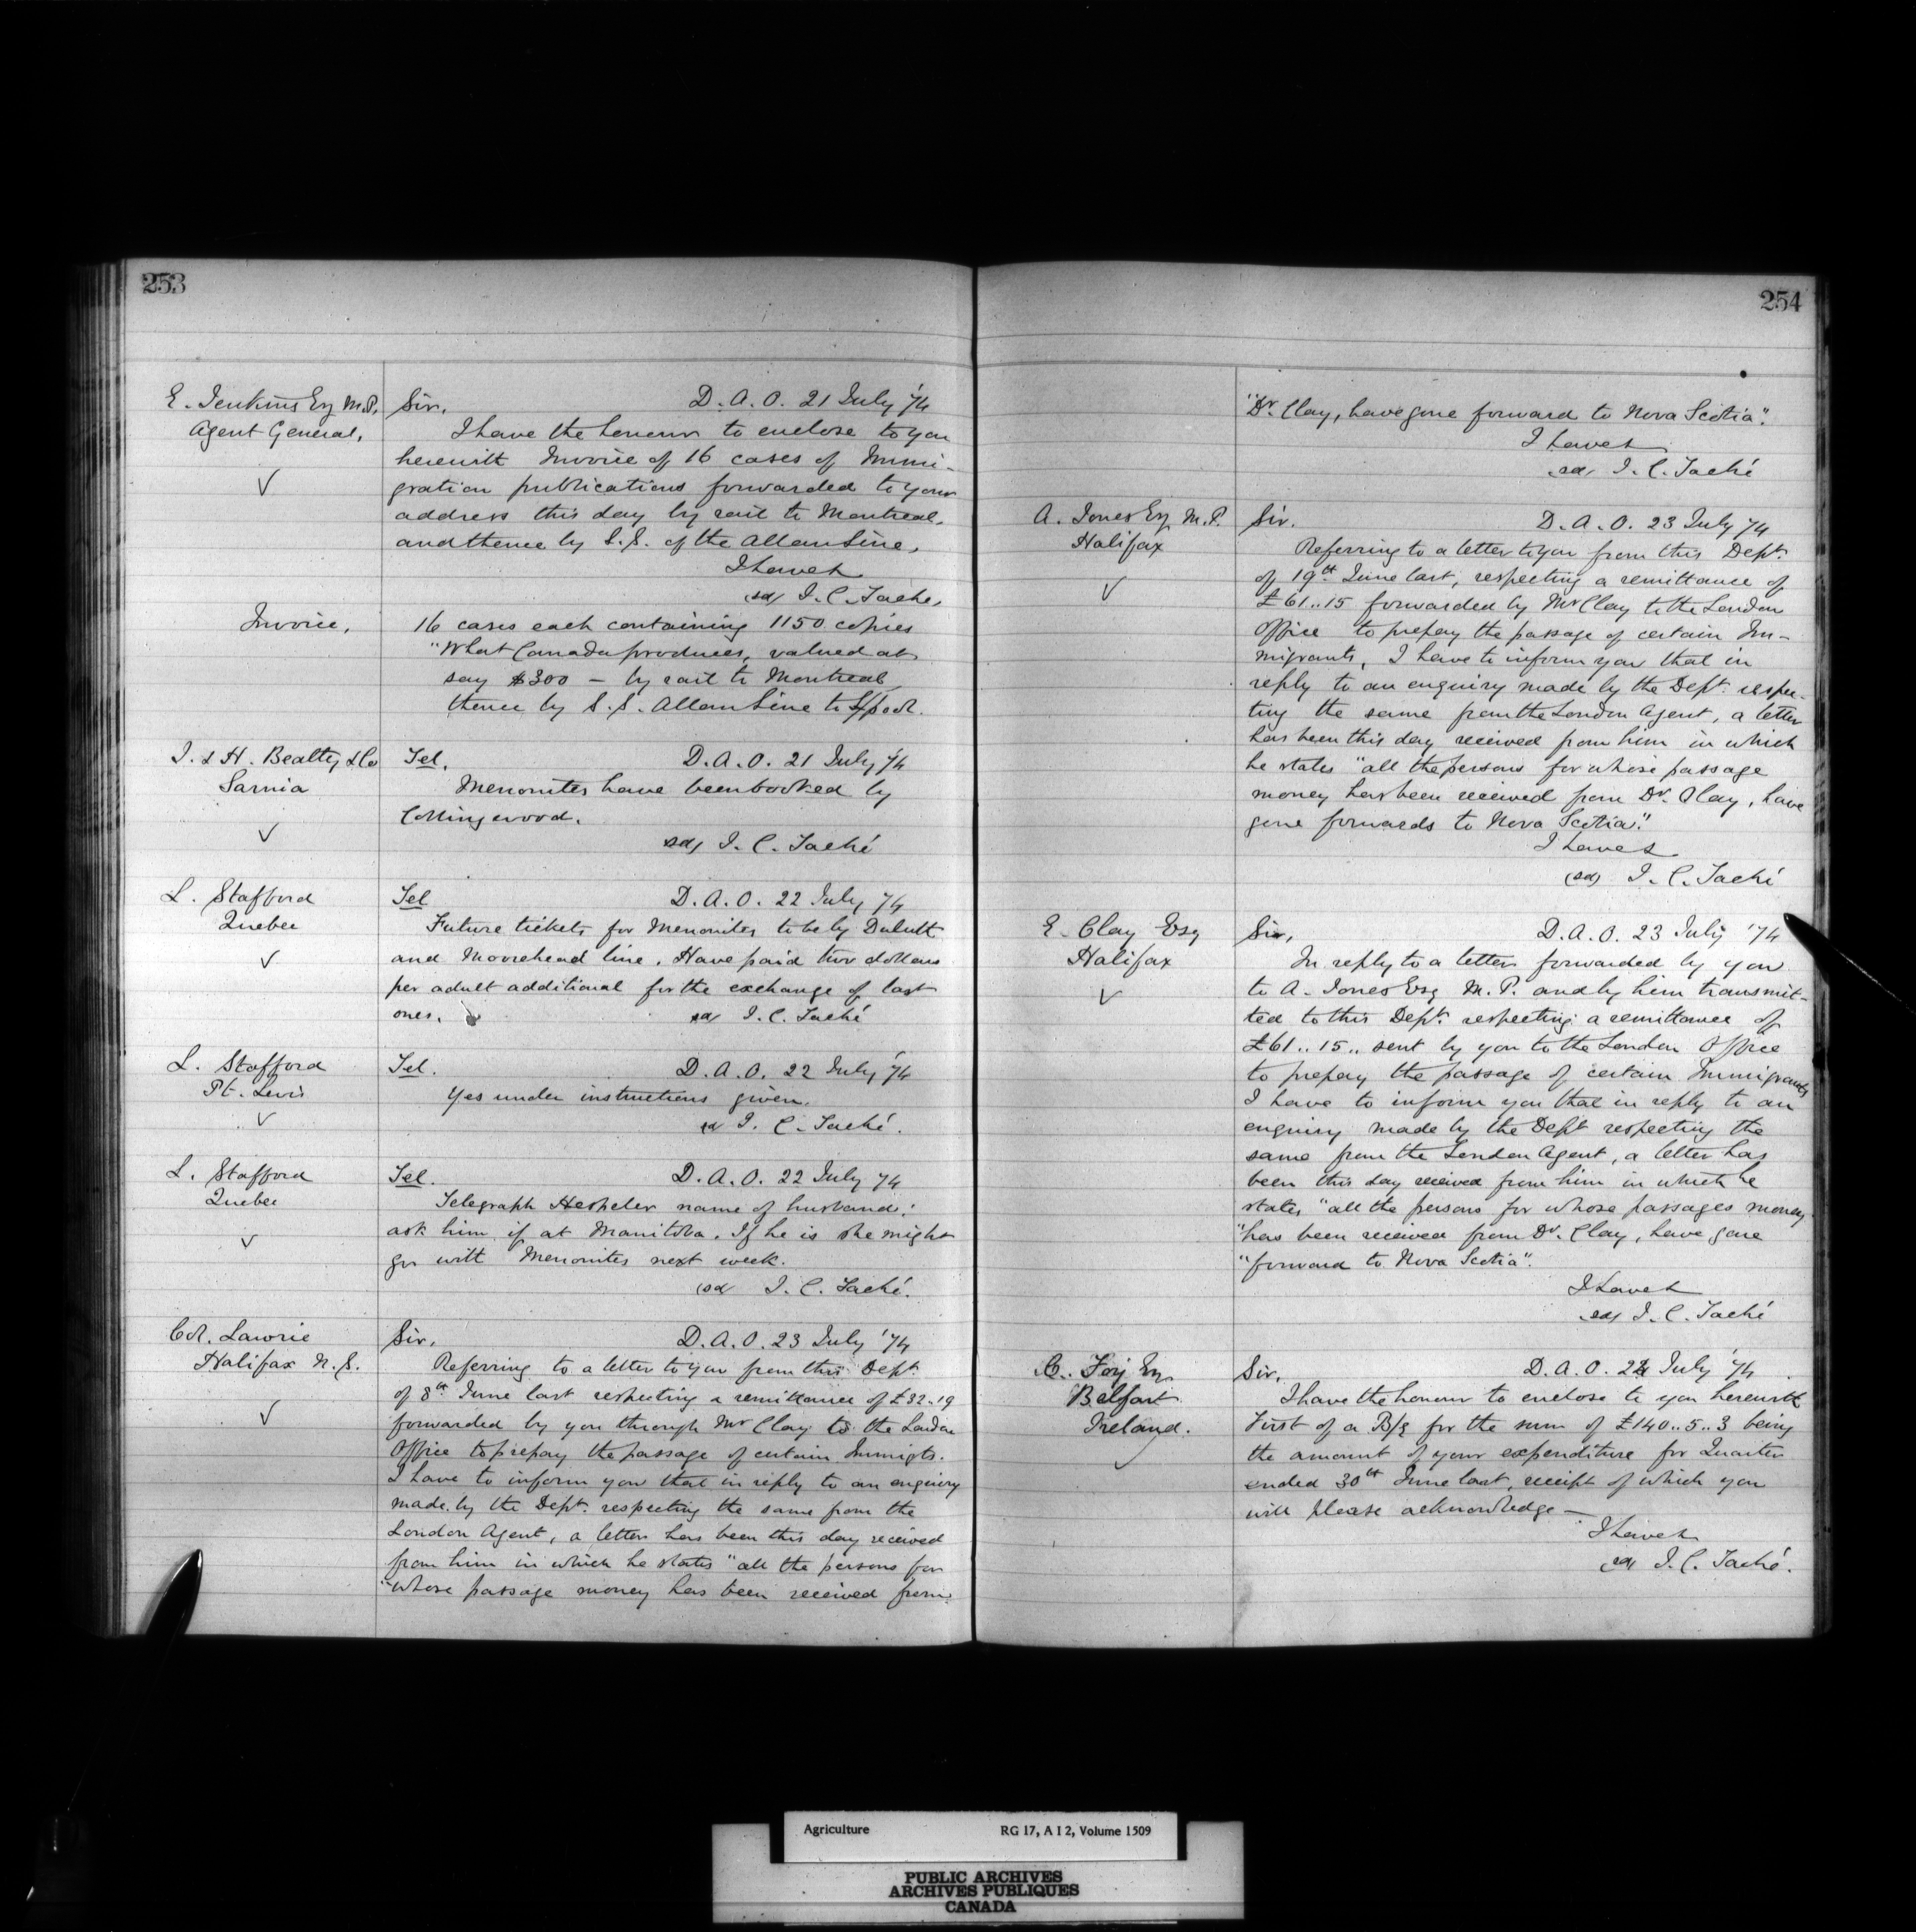 253
E. Jenkins Esq M.P.
Agent General,
Sir, D.A.O. 21 July '74
I have the honour to enclose to you
herewith Invoice of 16 cases of Immi-
gration publications forwarded to your
address this day by rail to Montreal,
and thence by S.S. of the Allan Line,
I have &
sd/ J.C. Tache,
Invoice,
16 cases each containing 1150 copies
"What Canada produces, valued at
say $300 – by rail to Montreal
thence by S.S. Allan Line to L'pool.
J. & H. Beatty & Co
Sarnia
Tel. D.A.O. 21 July '74
Menonites have been booked by
Collingwood.
sd/ J.C. Taché
L. Stafford
Quebec
Tel D.A.O. 22 July '74
Future tickets for Menonites to be by Duluth
and Moorehead line. Have paid two dollars
per adult additional for the exchange of last
ones. sd/ J.C. Taché
L. Stafford
Pt. Levis
Tel. D.A.O. 22 July '74
Yes under instructions given.
sd J.C. Taché.
L. Stafford
Quebec
Tel. D.A.O. 22 July '74
Telegraph Hespeler name of husband:
ask him if at Manitoba. If he is she might
go with Menonites next week.
(sd J.C. Taché.
Lawrie
Halifax N.S.
Sir, D.A.O. 23 July '74
Referring to a letter to you from this Dept.
of 8th June last respecting a remittance of £32..19
forwarded by you through Mr Clay to the London
Office to prepay the passage of certain Immigts.
I have to inform you that in reply to an enquiry
made by the Dept. respecting the same from the
London Agent, a letter has been this day received
from him in which he states "all the persons for
"whose passage money has been received from
254
"Dr. Clay, have gone forward to Nova Scotia".
I have &
sd/ J.C. Taché
A. Jones Esq M.P.
Halifax
Sir. D.A.O. 23 July '74
Referring to a letter to you from this Dept.
of 19th June last, respecting a remittance of
£61..15 forwarded by Mr Clay to the London
Office to prepay the passage of certain Im-
migrants, I have to inform you that in
reply to an enquiry made by the Dept. respec-
ting the same from the London Agent, a letter
has been this day received from him in which
he states "all the persons for whose passage
money has been received from Dr. Clay, have
gone forwards to Nova Scotia".
I have &
(sd) J.C. Taché
E. Clay Esq
Halifax
Sir, D.A.O. 23 July '74
In reply to a letter forwarded by you
to A. Jones Esq M.P. and by him transmit-
ted to this Dept. respecting a remittance of
£61..15.. sent by you to the London Office
to prepay the passage of certain Immigrants
I have to inform you that in reply to an
enquiry made by the Dept respecting the
same from the London Agent, a letter has
been this day received from him in which he
states "all the persons for whose passages money
"has been received from Dr. Clay, have gone
"forward to Nova Scotia".
I have &
sd/ J.C. Taché
C. Foy Esq
Belfast
Ireland.
Sir, D.A.O. 24 July '74
I have the honour to enclose to you herewith
First of a B/E for the sum of £140..5..3 being
the amount of your expenditure for Quarter
ended 30th June last, receipt of which you
will please acknowledge –
I have &
sd J.C. Taché.
Agriculture RG 17, A I 2, Volume 1509
PUBLIC ARCHIVES
ARCHIVES PUBLIQUES
CANADA